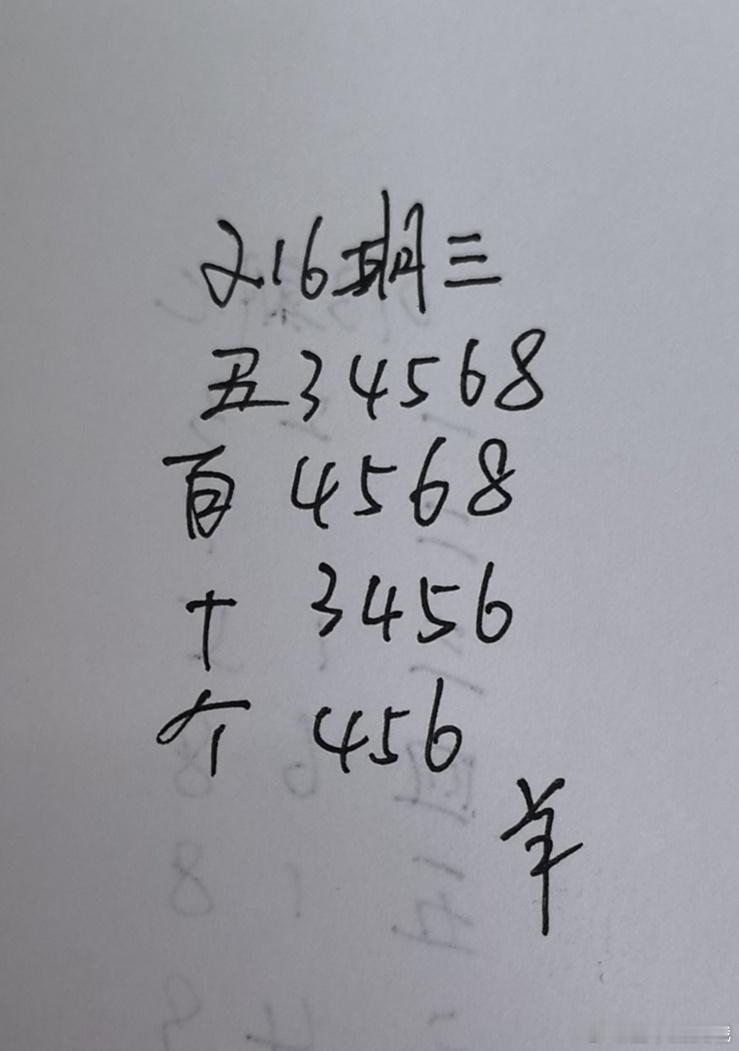 216期三
五34568
百 4568
十 3456
个 456
羊